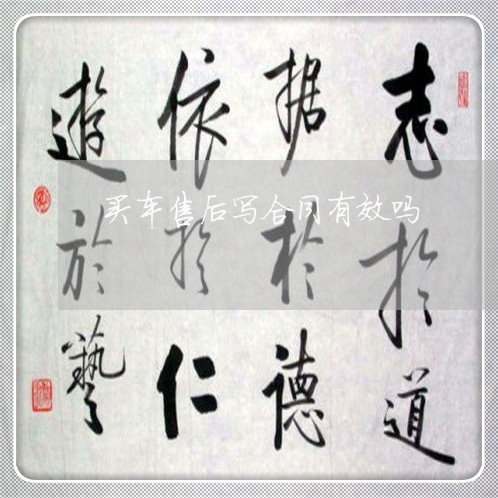 志扵道
据於德
依扵仁
遊於藝
买车售后写合同有效吗